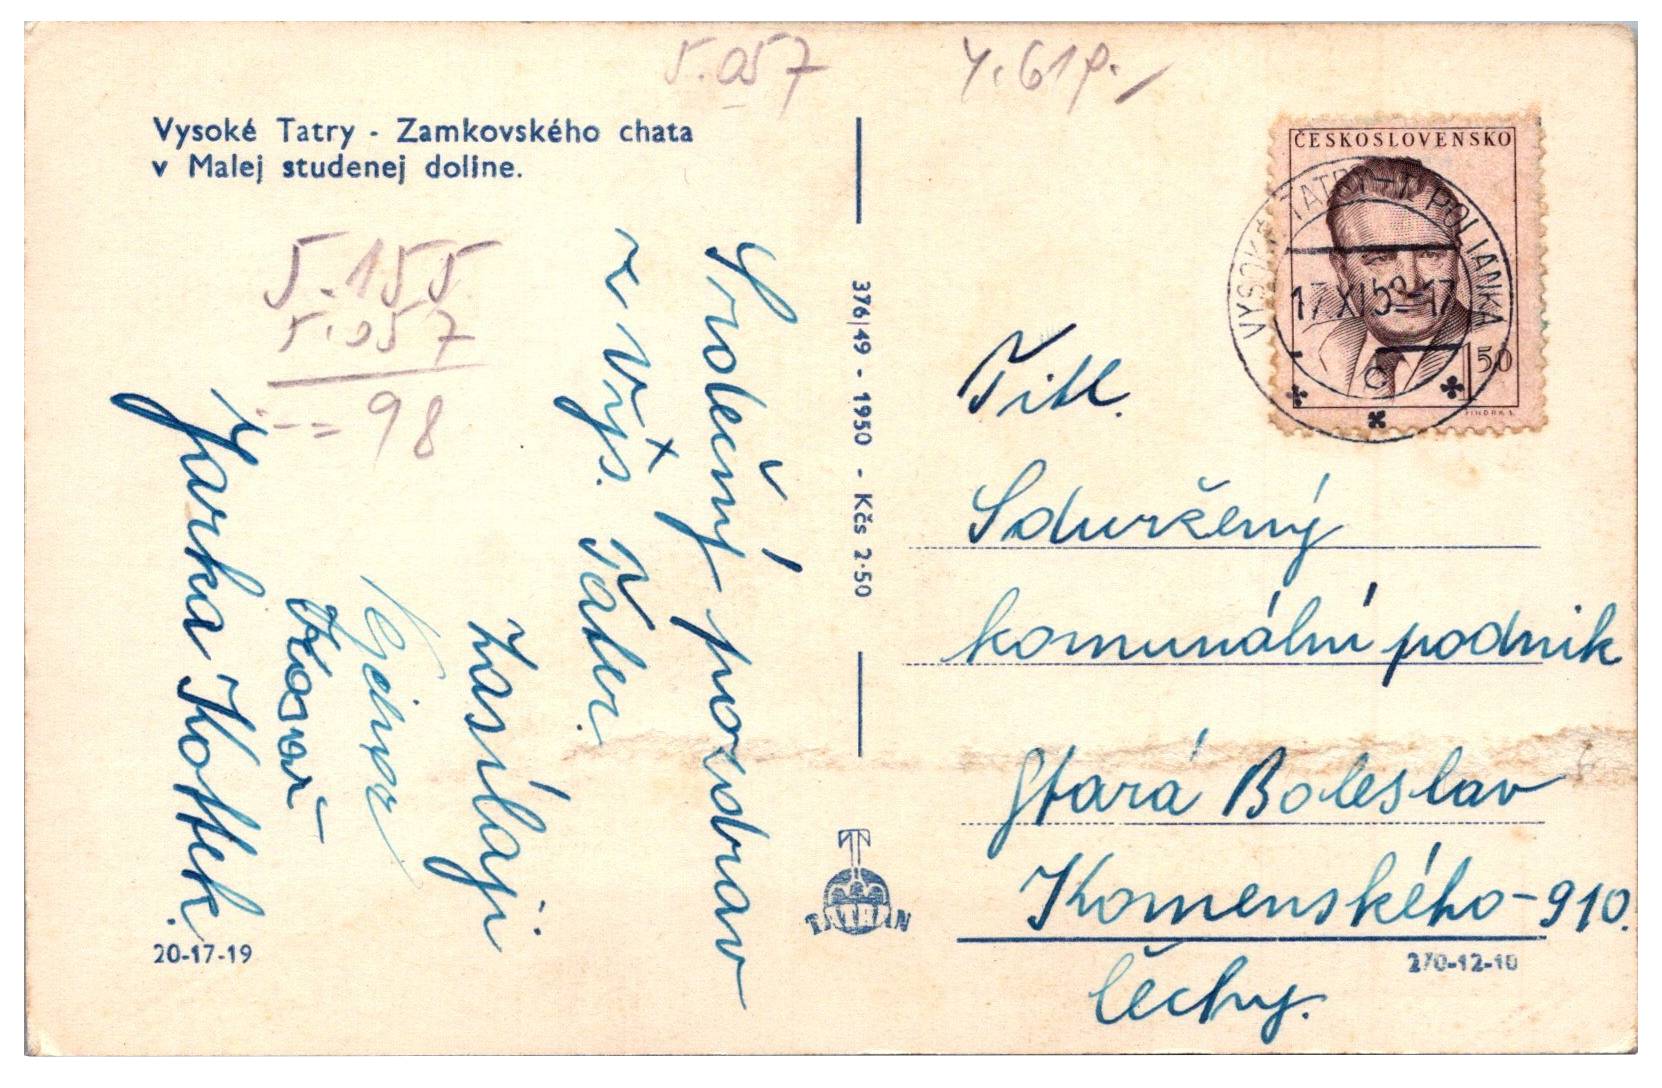 5.057
Vysoké Tatry - Zamkovského chata
v Malej studenej doline.
5.155
5.057
98
Srdečný pozdrav
z Vys. Tater
zasílají
Jarka Kottek.
20-17-19
376/49 - 1950 - Kčs 2·50
TATRAN
ČESKOSLOVENSKO
VYSOKÉ TATRY-T. POLIANKA
17.XI.52-17
c
1 50
Titl.
Sdružený
komunální podnik
Stará Boleslav
Komenského-910.
Čechy.
270-12-10